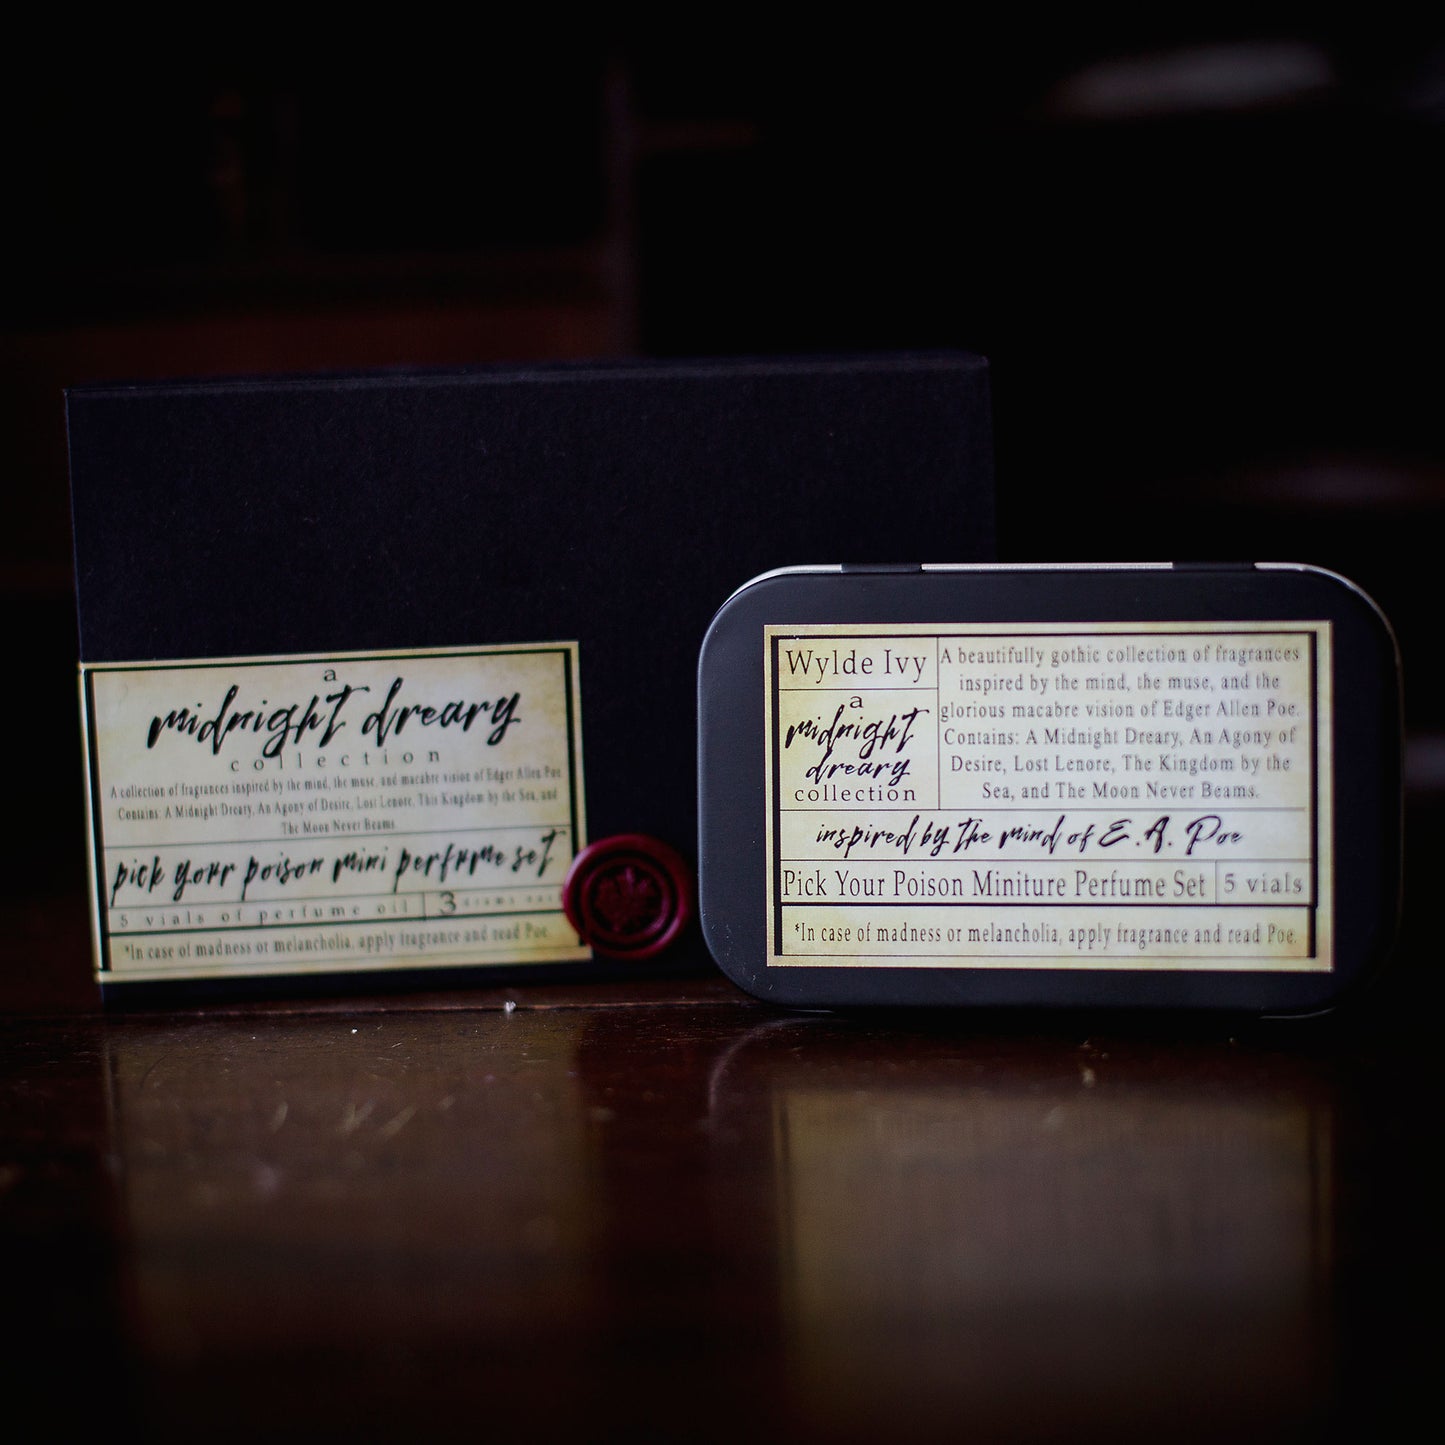 a
midnight dreary
collection
A collection of fragrances inspired by the mind, the muse, and macabre vision of Edger Allen Poe
Contains: A Midnight Dreary, An Agony of Desire, Lost Lenore, This Kingdom by the Sea, and
The Moon Never Beams.
pick your poison mini perfume set
5 vials of perfume oil 3 drams each
*In case of madness or melancholia, apply fragrance and read Poe.
Wylde Ivy
a
midnight
dreary
collection
A beautifully gothic collection of fragrances
inspired by the mind, the muse, and the
glorious macabre vision of Edger Allen Poe.
Contains: A Midnight Dreary, An Agony of
Desire, Lost Lenore, The Kingdom by the
Sea, and The Moon Never Beams.
inspired by the mind of E.A. Poe
Pick Your Poison Miniture Perfume Set 5 vials
*In case of madness or melancholia, apply fragrance and read Poe.